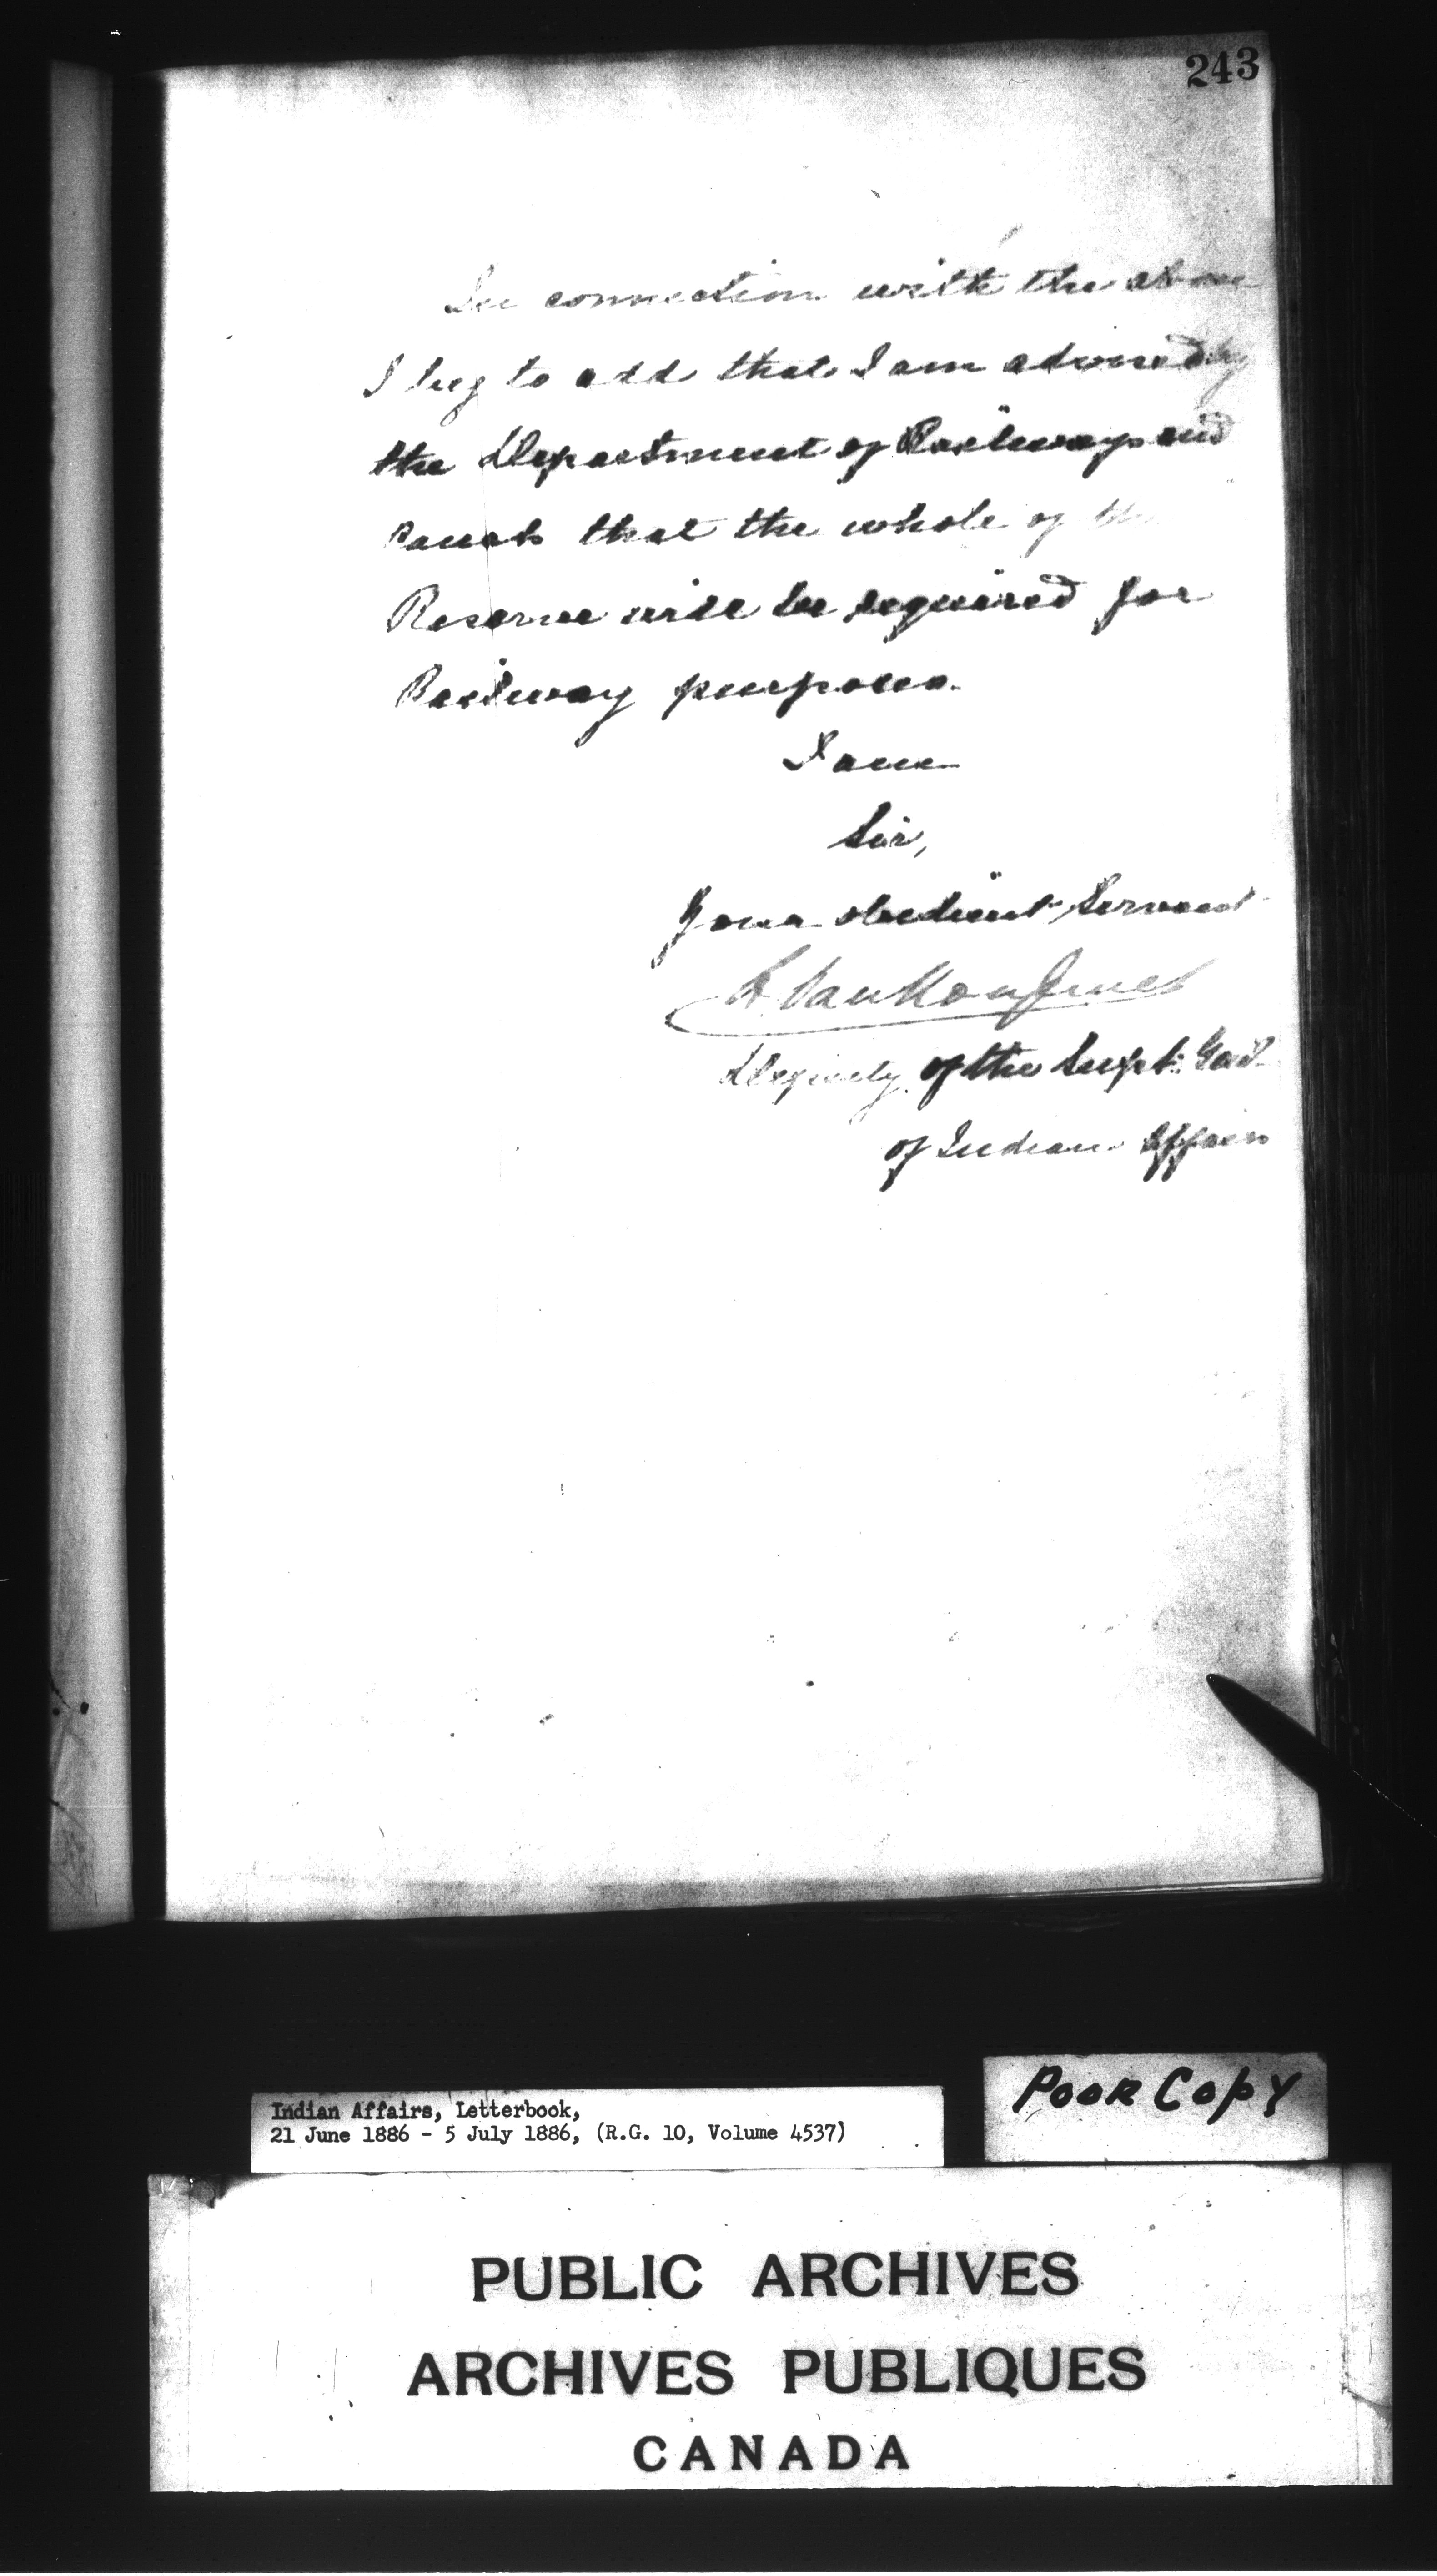 243
In connection with the above
I beg to add that I am advised by
the Department of Railways and
Canals that the whole of the
Reserve will be required for
Railway purposes.
I am
Sir,
Your obedient Servant
L. VanKoughnet
Deputy of the Supt. Gen'l
of Indian Affairs
Poor Copy
Indian Affairs, Letterbook,
21 June 1886 - 5 July 1886, (R.G. 10, Volume 4537)
PUBLIC ARCHIVES
ARCHIVES PUBLIQUES
CANADA